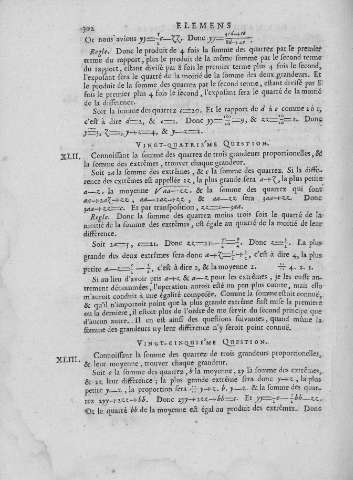 302 ELEMENS
Or nous avions yy=½c—zz. Donc yy=
Regle. Donc le produit de 4 fois la somme des quarrez par le premier
terme du rapport, plus le produit de la même somme par le second terme
du rapport, étant divisé par 8 fois le premier terme plus 4 fois le second,
l'exposant sera le quarré de la moitié de la somme des deux grandeurs. Et
le produit de 4 fois la somme des quarrez par le second terme étant divisé par 8
fois le premier plus 4 fois le second, l'exposant sera le quarré de la moitié
de la difference.
Soit la somme des quarrez c=20. Et le rapport de d à e comme 2 à 1,
c'est à dire d=2, & e=1. Donc yy= =9, & zz= =1. Et
donc y=3, z=1, y+z=4, & y—z=2.
VINGT-QUATRIÈME QUESTION.
XLII. Connoissant la somme des quarrez de trois grandeurs proportionelles, &
la somme des extrêmes, trouver chaque grandeur.
Soit 2a la somme des extrêmes, & c la somme des quarrez. Si la diffe-
rence des extrêmes est appellée 2z, la plus grande sera a+z, la plus petite
a—z, la moyenne √aa—zz, & la somme des quarrez qui sont
aa+2az+zz, aa—2az+zz, & aa—zz sera 3aa+zz. Donc
3aa+zz=c. Et par transposition, zz=c—3aa.
Regle. Donc la somme des quarrez moins trois fois le quarré de la
moitié de la somme des extrêmes, est égale au quarré de la moitié de leur
difference.
Soit 2a=5, c=21. Donc zz=21— = . Donc z= . La plus
grande des deux extrêmes sera donc a+z= + , c'est à dire 4, la plus
petite a—z= — , c'est à dire 1, & la moyenne 2. ∺ 4. 2. 1.
Si au lieu d'avoir pris a+z & a—z pour les extrêmes, je les eusse au-
trement dénommées, l'operation auroit été un peu plus courte, mais elle
m'auroit conduit à une égalité composée. Comme la somme étoit connuë,
& qu'il n'importoit point que la plus grande extrême fust mise la premiere
ou la derniere, il étoit plus de l'ordre de me servir du second principe que
d'aucun autre. Il en est ainsi des questions suivantes, quand même la
somme des grandeurs ny leur difference n'y seroit point connuë.
VINGT-CINQUIÈME QUESTION.
XLIII. Connoissant la somme des quarrez de trois grandeurs proportionelles,
& leur moyenne, trouver chaque grandeur.
Soit c la somme des quarrez, b la moyenne, 2y la somme des extrêmes,
& 2z leur difference; la plus grande extrême sera donc y+z, la plus
petite y—z, la proportion sera ∺ y+z. b. y—z. & la somme des quar-
rez 2yy+2zz+bb. Donc 2yy+2zz+bb=c. Et yy=½c—½bb—zz.
Or le quarré bb de la moyenne est égal au produit des extrêmes. Donc